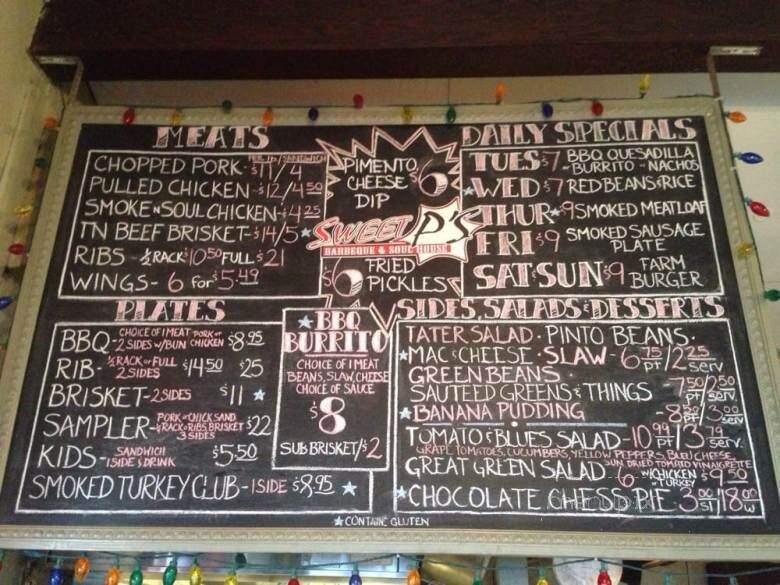 MEATS
PER lb/SANDWICH
CHOPPED PORK - $11/4
PULLED CHICKEN - $12/4 50
SMOKE N SOUL CHICKEN - $4 25
TN BEEF BRISKET - $14/5 ★
RIBS - ½ RACK $10 50 FULL $21
WINGS - 6 for $5.49
PIMENTO
CHEESE $6
DIP
SWEET P'S
BARBEQUE & SOUL HOUSE
FRIED
$6 PICKLES
DAILY SPECIALS
TUES $7 BBQ QUESADILLA
- BURRITO - NACHOS
WED $7 RED BEANS & RICE
THUR $9 SMOKED MEATLOAF
FRI $9 SMOKED SAUSAGE
PLATE
SAT & SUN $9 FARM
BURGER
PLATES
BBQ - CHOICE OF 1 MEAT PORK OR CHICKEN $8.95
2 SIDES W/BUN
RIB - ½ RACK OR FULL $14.50 $25
2 SIDES
BRISKET - 2 SIDES $11 ★
SAMPLER - PORK OR CHICK SAND
¼ RACK RIBS, BRISKET $22
3 SIDES
KIDS - SANDWICH $5.50
1 SIDE & DRINK
SMOKED TURKEY CLUB - 1 SIDE $8.95 ★
★ BBQ
BURRITO
CHOICE OF 1 MEAT
BEANS, SLAW, CHEESE
CHOICE OF SAUCE
$8
SUB BRISKET/$2
SIDES, SALADS & DESSERTS
TATER SALAD · PINTO BEANS ·
★ MAC & CHEESE · SLAW - 6 75 pt / 2 25 serv
GREEN BEANS
SAUTEED GREENS & THINGS 7 50 pt / 2 50 serv
★ BANANA PUDDING - 8 pt / 3 00 serv
TOMATO & BLUES SALAD - 10 99 pt / 3 79 serv.
GRAPE TOMATOES, CUCUMBERS, YELLOW PEPPERS, BLEU CHEESE,
SUN DRIED TOMATO VINAIGRETTE
GREAT GREEN SALAD - 6 W/CHICKEN OR TURKEY $9.50
★ CHOCOLATE CHESS PIE 3 00 sl / 18 00 w
★ CONTAINS GLUTEN